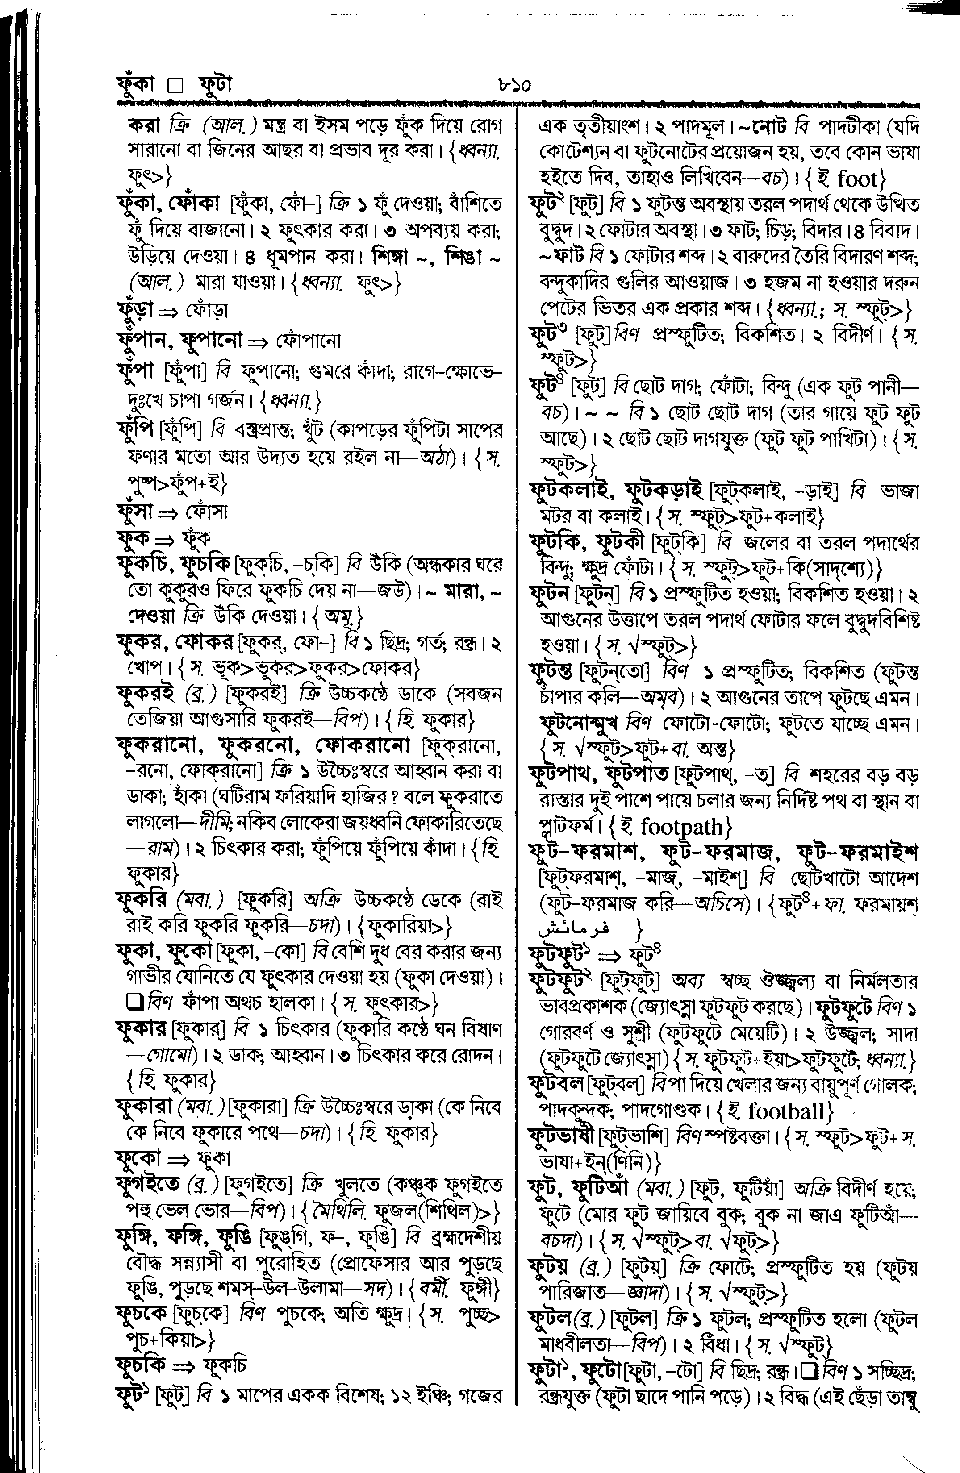 ফুঁকা □ ফুটা
৮১০
করা ক্রি (আল.) মন্ত্র বা ইসম পড়ে ফুঁক দিয়ে রোগ
সারানো বা জিনের আছর বা প্রভাব দূর করা। {ধ্বন্যা.
ফুৎ>}
ফুঁকা, ফোঁকা [ফুঁকা, ফোঁ-] ক্রি ১ ফুঁ দেওয়া; বাঁশিতে
ফুঁ দিয়ে বাজানো। ২ ফুৎকার করা। ৩ অপব্যয় করা;
উড়িয়ে দেওয়া। ৪ ধূমপান করা। শিঙ্গা ~, শিঙা ~
(আল.) মারা যাওয়া। {ধ্বন্যা. ফুৎ>}
ফুঁড়া ⇒ ফোঁড়া
ফুঁপান, ফুপানো ⇒ ফোঁপানো
ফুঁপা [ফুঁপা] বি ফুপানো; গুমরে কাঁদা; রাগে-ক্ষোভে-
দুঃখে চাপা গর্জন। {ধ্বন্যা.}
ফুঁপি [ফুঁপি] বি বস্ত্রপ্রান্ত; খুঁট (কাপড়ের ফুঁপিটা সাপের
ফণার মতো আর উদ্যত হয়ে রইল না—অঠা)। {স.
পুষ্প>ফুঁপ+ই}
ফুঁসা ⇒ ফোঁসা
ফুক ⇒ ফুঁক
ফুকচি, ফুচকি [ফুক্‌চি, -চ্‌কি] বি উঁকি (অন্ধকার ঘরে
তো কুকুরও ফিরে ফুকচি দেয় না—জউ)। ~ মারা, ~
দেওয়া ক্রি উঁকি দেওয়া। {অমূ.}
ফুকর, ফোকর [ফুকর্, ফো-] বি ১ ছিদ্র; গর্ত; রন্ধ্র। ২
খোপ। {স. ভূক>ভূকর>ফুকর>ফোকর}
ফুকরই (ব্র.) [ফুকরই] ক্রি উচ্চকণ্ঠে ডাকে (সবজন
তেজিয়া আগুসারি ফুকরই—বিপ)। {হি. ফুকার}
ফুকরানো, ফুকরনো, ফোকরানো [ফুক্‌রানো,
-রনো, ফোক্‌রানো] ক্রি ১ উচ্চৈঃস্বরে আহ্বান করা বা
ডাকা; হাঁকা (ঘটিরাম ফরিয়াদি হাজির? বলে ফুকরাতে
লাগলো—দীমি; নকিব লোকেরা জয়ধ্বনি ফোকারিতেছে
—রাম)। ২ চিৎকার করা; ফুঁপিয়ে ফুঁপিয়ে কাঁদা। {হি.
ফুকার}
ফুকরি (মবা.) [ফুকরি] অক্রি উচ্চকণ্ঠে ডেকে (রাই
রাই করি ফুকরি ফুকরি—চদা)। {ফুকারিয়া>}
ফুকা, ফুকো [ফুকা, -কো] বি বেশি দুধ বের করার জন্য
গাভীর যোনিতে যে ফুৎকার দেওয়া হয় (ফুকা দেওয়া)।
❑ বিণ ফাঁপা অথচ হালকা। {স. ফুৎকার>}
ফুকার [ফুকার্] বি ১ চিৎকার (ফুকারি কণ্ঠে ঘন বিষাণ
—গোমো)। ২ ডাক; আহ্বান। ৩ চিৎকার করে রোদন।
{হি. ফুকার}
ফুকারা (মবা.) [ফুকারা] ক্রি উচ্চৈঃস্বরে ডাকা (কে নিবে
কে নিবে ফুকারে পথে—চদা)। {হি. ফুকার}
ফুকো ⇒ ফুকা
ফুগইতে (ব্র.) [ফুগইতে] ক্রি খুলতে (কঞ্চুক ফুগইতে
পহু ভেল ভোর—বিপ)। {মৈথিলি. ফুজল(শিথিল)>}
ফুঙ্গি, ফঙ্গি, ফুঙি [ফুঙ্‌গি, ফ-, ফুঙি] বি ব্রহ্মদেশীয়
বৌদ্ধ সন্ন্যাসী বা পুরোহিত (প্রোফেসার আর পুড়ছে
ফুঙি, পুড়ছে শমস্-উল-উলামা—সদ)। {বর্মী. ফুঙ্গী}
ফুচকে [ফুচ্‌কে] বিণ পুচকে; অতি ক্ষুদ্র। {স. পুচ্ছ>
পুচ+কিয়া>}
ফুচকি ⇒ ফুকচি
ফুট১ [ফুট্] বি ১ মাপের একক বিশেষ; ১২ ইঞ্চি; গজের
এক তৃতীয়াংশ। ২ পাদমূল। ~নোট বি পাদটীকা (যদি
কোটেশ্যন বা ফুটনোটের প্রয়োজন হয়, তবে কোন ভাষা
হইতে দিব, তাহাও লিখিবেন—বচ)। {ই foot}
ফুট২ [ফুট্] বি ১ ফুটন্ত অবস্থায় তরল পদার্থ থেকে উত্থিত
বুদ্বুদ। ২ ফোটার অবস্থা। ৩ ফাট; চিড়; বিদার। ৪ বিবাদ।
~ফাট বি ১ ফোটার শব্দ। ২ বারুদের তৈরি বিদারণ শব্দ;
বন্দুকাদির গুলির আওয়াজ। ৩ হজম না হওয়ার দরুন
পেটের ভিতর এক প্রকার শব্দ। {ধ্বন্যা.; স. স্ফুট>}
ফুট৩ [ফুট্] বিণ প্রস্ফুটিত; বিকশিত। ২ বিদীর্ণ। {স.
স্ফুট>}
ফুট৪ [ফুট্] বি ছোট দাগ; ফোঁটা; বিন্দু (এক ফুট পানী—
বচ)। ~ ~ বি ১ ছোট ছোট দাগ (তার গায়ে ফুট ফুট
আছে)। ২ ছোট ছোট দাগযুক্ত (ফুট ফুট পাখিটা)। {স.
স্ফুট>}
ফুটকলাই, ফুটকড়াই [ফুট্‌কলাই, -ড়াই] বি ভাজা
মটর বা কলাই। {স. স্ফুট>ফুট+কলাই}
ফুটকি, ফুটকী [ফুট্‌কি] বি জলের বা তরল পদার্থের
বিন্দু; ক্ষুদ্র ফোঁটা। {স. স্ফুট>ফুট+কি(সাদৃশ্যে)}
ফুটন [ফুটন্] বি ১ প্রস্ফুটিত হওয়া; বিকশিত হওয়া। ২
আগুনের উত্তাপে তরল পদার্থ ফোটার ফলে বুদ্বুদবিশিষ্ট
হওয়া। {স. √স্ফুট>}
ফুটন্ত [ফুটন্‌তো] বিণ ১ প্রস্ফুটিত; বিকশিত (ফুটন্ত
চাঁপার কলি—অমৃব)। ২ আগুনের তাপে ফুটছে এমন।
ফুটনোন্মুখ বিণ ফোটো-ফোটো; ফুটতে যাচ্ছে এমন।
{স. √স্ফুট>ফুট+বা. অন্ত}
ফুটপাথ, ফুটপাত [ফুট্‌পাথ্, -ত্] বি শহরের বড় বড়
রাস্তার দুই পাশে পায়ে চলার জন্য নির্দিষ্ট পথ বা স্থান বা
প্লাটফর্ম। {ই footpath}
ফুট-ফরমাশ, ফুট-ফরমাজ, ফুট-ফরমাইশ
[ফুটফরমাশ্, -মাজ্, -মাইশ্] বি ছোটখাটো আদেশ
(ফুট-ফরমাজ করি—অচিসে)। {ফুট৪+ফা. ফরমায়শ্
فرمائش }
ফুটফুট১ ⇒ ফুট৪
ফুটফুট২ [ফুট্‌ফুট্] অব্য স্বচ্ছ ঔজ্জ্বল্য বা নির্মলতার
ভাবপ্রকাশক (জ্যোৎস্না ফুটফুট করছে)। ফুটফুটে বিণ ১
গৌরবর্ণ ও সুশ্রী (ফুটফুটে মেয়েটি)। ২ উজ্জ্বল; সাদা
(ফুটফুটে জ্যোৎস্না) {স. ফুটফুট+ইয়া>ফুটফুটে; ধ্বন্যা.}
ফুটবল [ফুট্‌বল্] বি পা দিয়ে খেলার জন্য বায়ুপূর্ণ গোলক;
পাদকন্দুক; পাদগোণ্ডক। {ই football}
ফুটভাষী [ফুট্‌ভাশি] বিণ স্পষ্টবক্তা। {স. স্ফুট>ফুট+স.
ভাষা+ইন্(ণিনি)}
ফুট, ফুটিআঁ (মবা.) [ফুট্, ফুটিয়াঁ] অক্রি বিদীর্ণ হয়ে;
ফুটে (মোর ফুট জায়িবে বুক; বুক না জাএ ফুটিআঁ—
বচদা)। {স. √স্ফুট>বা. √ফুট>}
ফুটয় (ব্র.) [ফুটয়্] ক্রি ফোটে; প্রস্ফুটিত হয় (ফুটয়
পারিজাত—জ্ঞাদা)। {স. √স্ফুট>}
ফুটল (ব্র.) [ফুটল] ক্রি ১ ফুটল; প্রস্ফুটিত হলো (ফুটল
মাধবীলতা—বিপ)। ২ বিঁধা। {স. √স্ফুট}
ফুটা১, ফুটো [ফুটা, -টো] বি ছিদ্র; রন্ধ্র। ❑ বিণ ১ সচ্ছিদ্র;
রন্ধ্রযুক্ত (ফুটা ছাদে পানি পড়ে)। ২ বিদ্ধ (এই ছেঁড়া তাম্বু